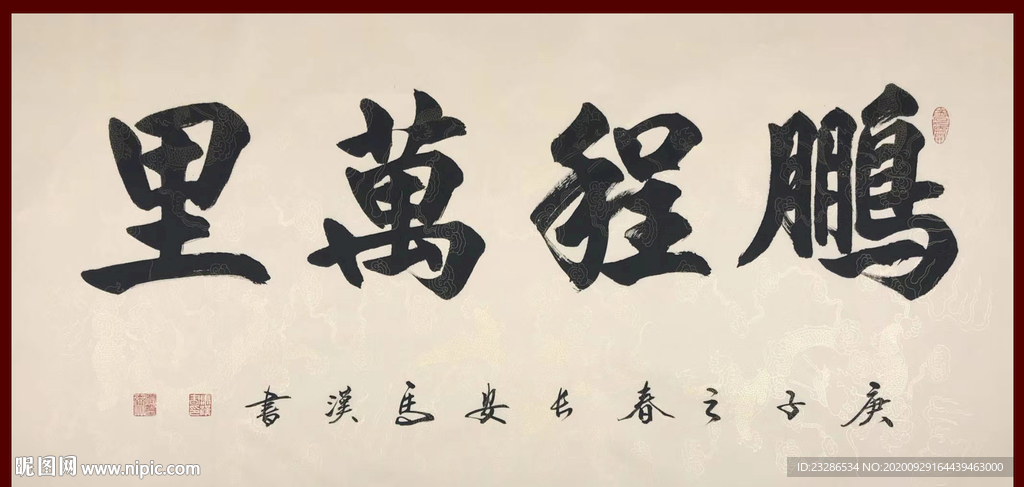 鵬程萬里
庚子之春長安馬漢書
昵图网 www.nipic.com
ID:23286534 NO:20200929164439463000